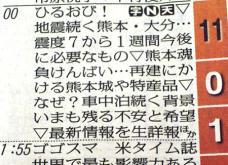 00 ひるおび! 字N天
地震続く熊本・大分…
震度7から1週間今後
に必要なもの▽熊本魂
負けんばい…再建にか
ける熊本城や特産品▽
なぜ?車中泊続く背景
いまも残る不安と希望
▽最新情報を生詳報
1:55 ゴゴスマ 米タイム誌
世界で最も影響力ある
11
0
1